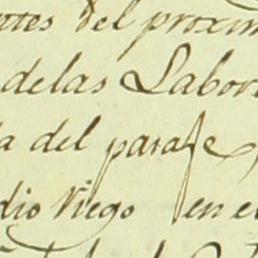 ntes del proxim
delas Labor
a del parage
dio Viego en el